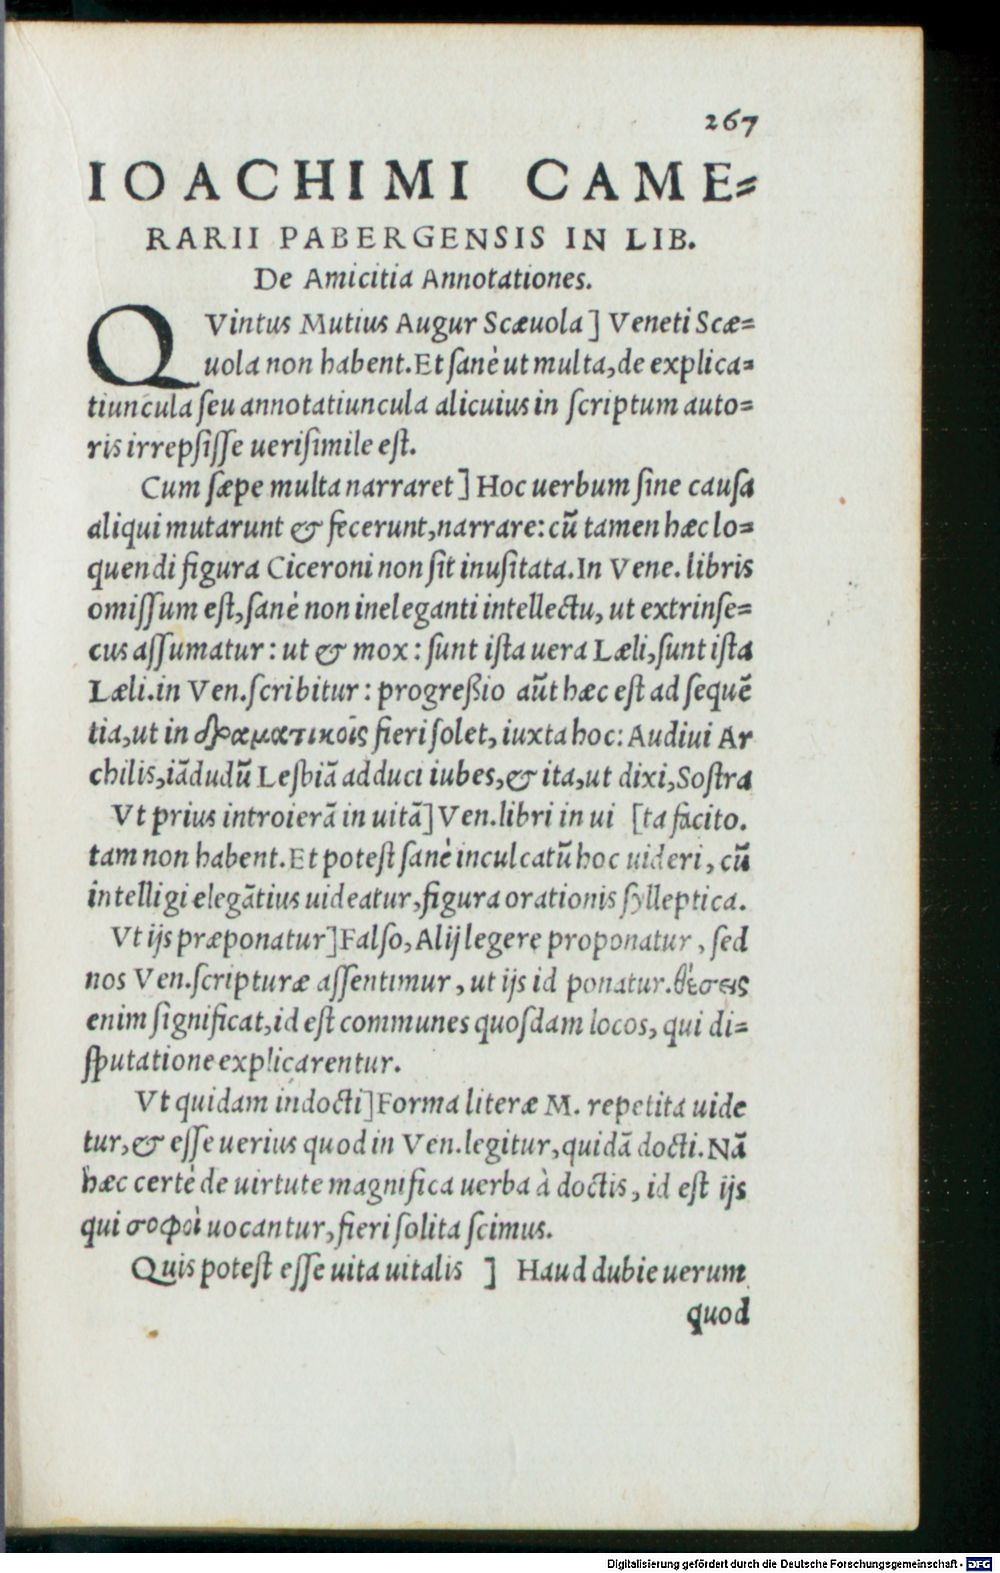 267
IOACHIMI CAME=
RARII PABERGENSIS IN LIB.
De Amicitia Annotationes.
QVintus Mutius Augur Scæuola] Veneti Scæ=
uola non habent. Et sanè ut multa, de explica=
tiuncula seu annotatiuncula alicuius in scriptum auto=
ris irrepsisse uerisimile est.
Cum sæpe multa narraret] Hoc uerbum sine causa
aliqui mutarunt & fecerunt, narrare: cū tamen hæc lo=
quendi figura Ciceroni non sit inusitata. In Vene. libris
omissum est, sanè non ineleganti intellectu, ut extrinse=
cus assumatur: ut & mox: sunt ista uera Læli, sunt ista
Læli. in Ven. scribitur: progreßio aūt hæc est ad sequē
tia, ut in δραματικοῖς fieri solet, iuxta hoc: Audiui Ar
chilis, iādudū Lesbiā adduci iubes, & ita, ut dixi, Sostra
Vt prius introierā in uitā] Ven. libri in ui [ta facito.
tam non habent. Et potest sanè inculcatū hoc uideri, cū
intelligi elegātius uideatur, figura orationis sylleptica.
Vt ijs præponatur] Falso, Alij legere proponatur, sed
nos Ven. scripturæ assentimur, ut ijs id ponatur. θέσεις
enim significat, id est communes quosdam locos, qui di=
sputatione explicarentur.
Vt quidam indocti] Forma literæ M. repetita uide
tur, & esse uerius quod in Ven. legitur, quidā docti. Nā
hæc certè de uirtute magnifica uerba à doctis, id est ijs
qui σοφοὶ uocantur, fieri solita scimus.
Quis potest esse uita uitalis ] Haud dubie uerum
quod
Digitalisierung gefördert durch die Deutsche Forschungsgemeinschaft - DFG